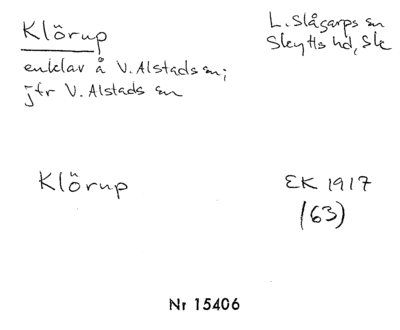 Klörup
L. Slågarps sn
Skytts hd, Sk
enklav å V. Alstads sn;
jfr V. Alstads sn
Klörup
EK 1917
(63)
Nr 15406